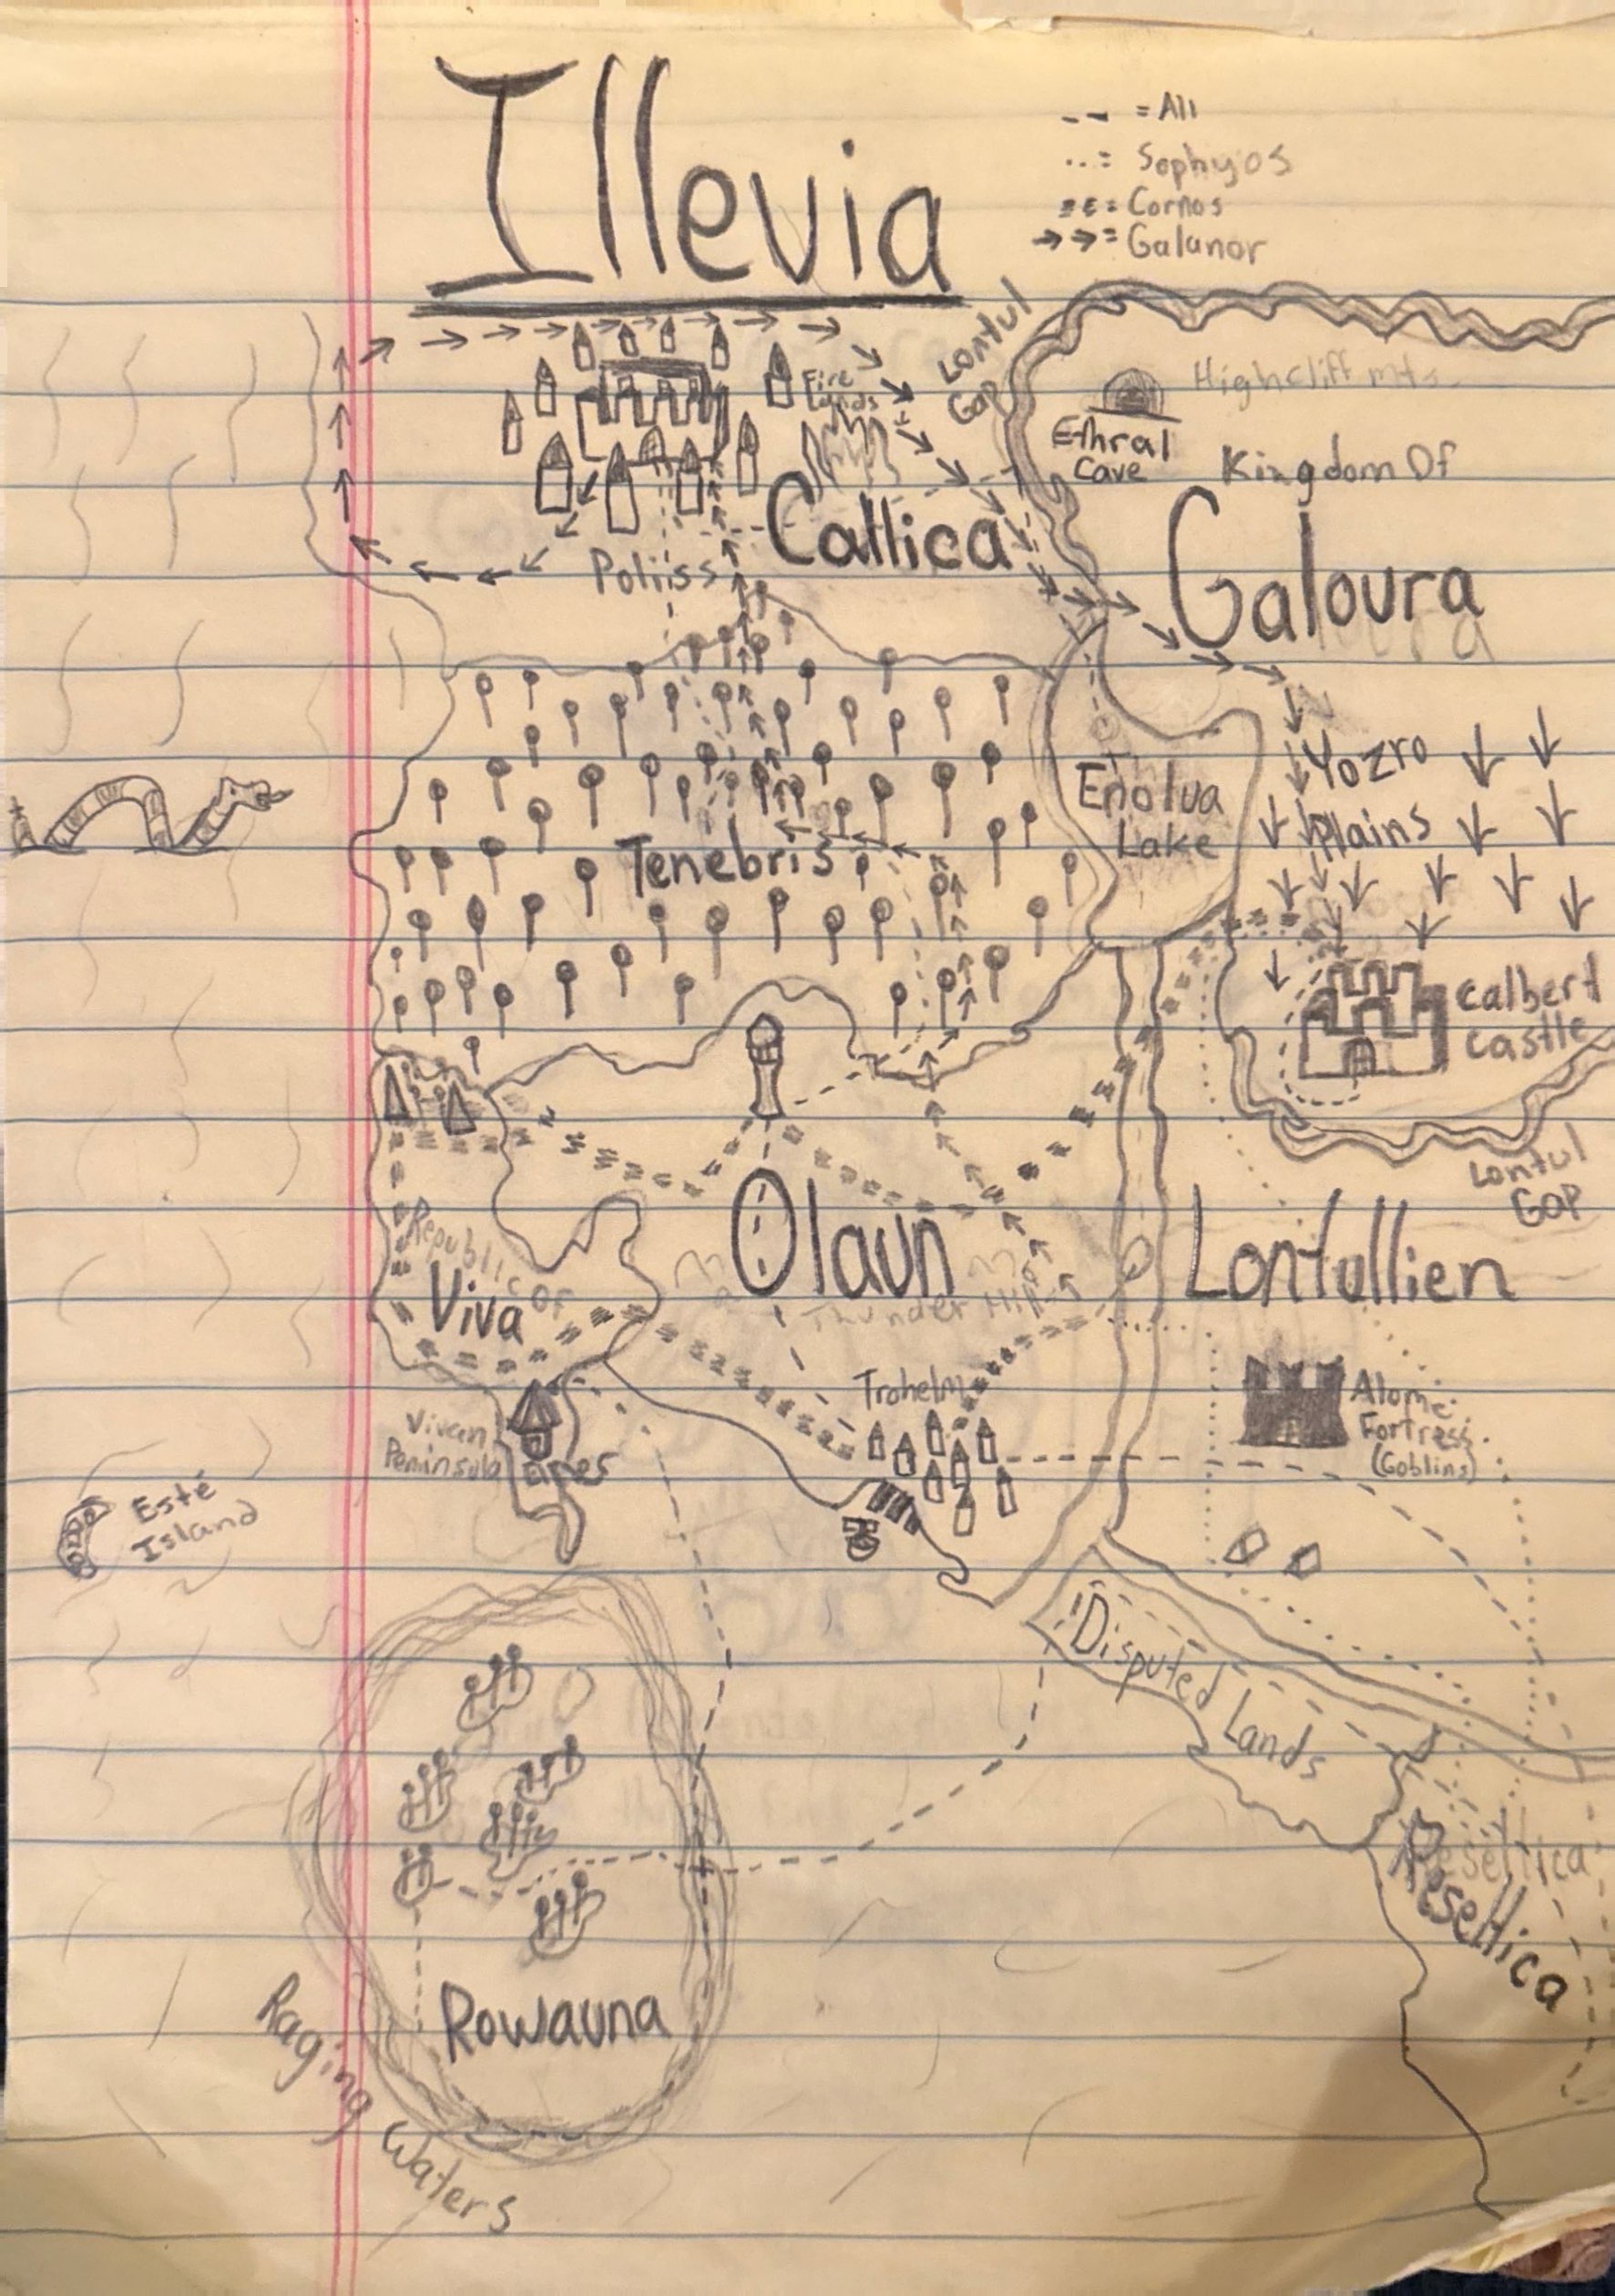 Illevia
-- = All
...= Sophyos
== = Cornos
→→= Galanor
Lontul
Gap
Fire
Lands
Highcliff mts.
Ethral
Cave
Kingdom Of
Callica
Galoura
Poliss
Yozro
Plains
Enolva
Lake
Tenebris
Calbert
Castle
Lontul
Gap
Olaun
Lontullien
Republic Of
Viva
Thunder Hills
Trohelm
Alome
Fortress
(Goblins)
Vivan
Peninsula
Esté
Island
Disputed Lands
Resettica
Resettica
Rowauna
Raging Waters